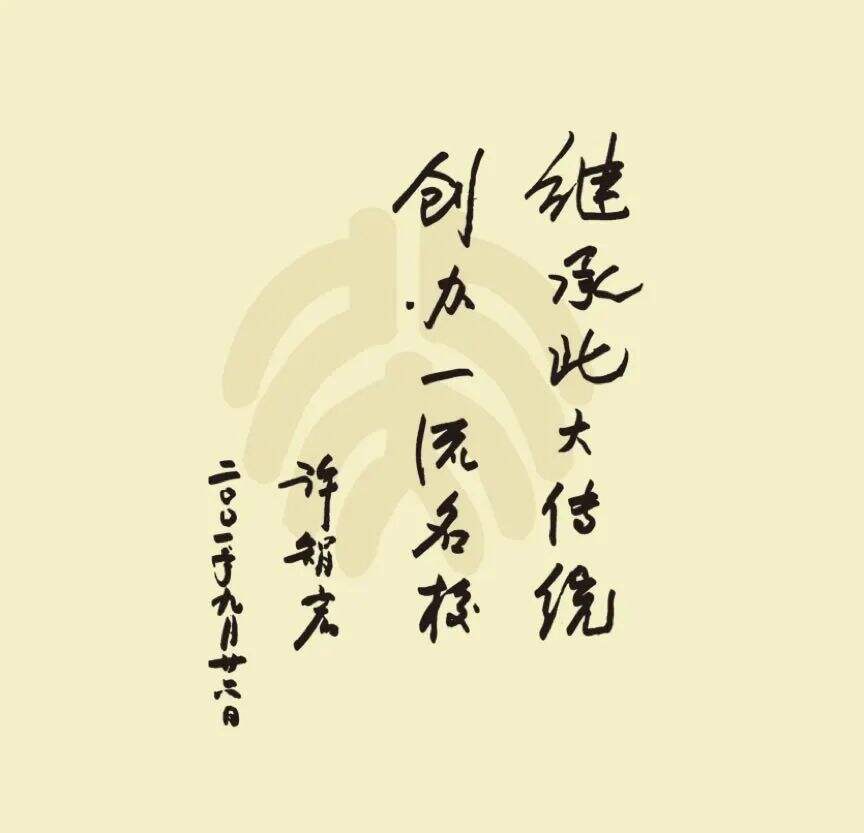 继承此大传统
创办一流名校
许智宏
二〇〇一年九月廿六日